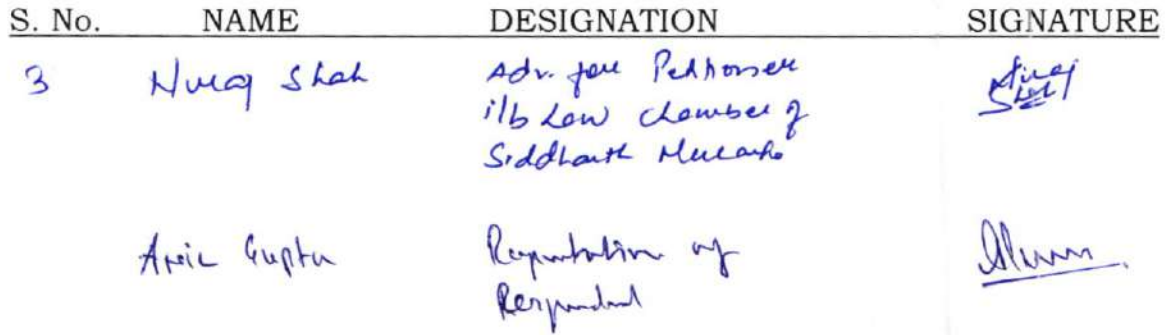 S. No. NAME DESIGNATION SIGNATURE
3 Niraj Shah Adv. for Petitioner Niraj Shah
i/b Law Chamber of
Siddharth
Anil Gupta Representative of
Respondent